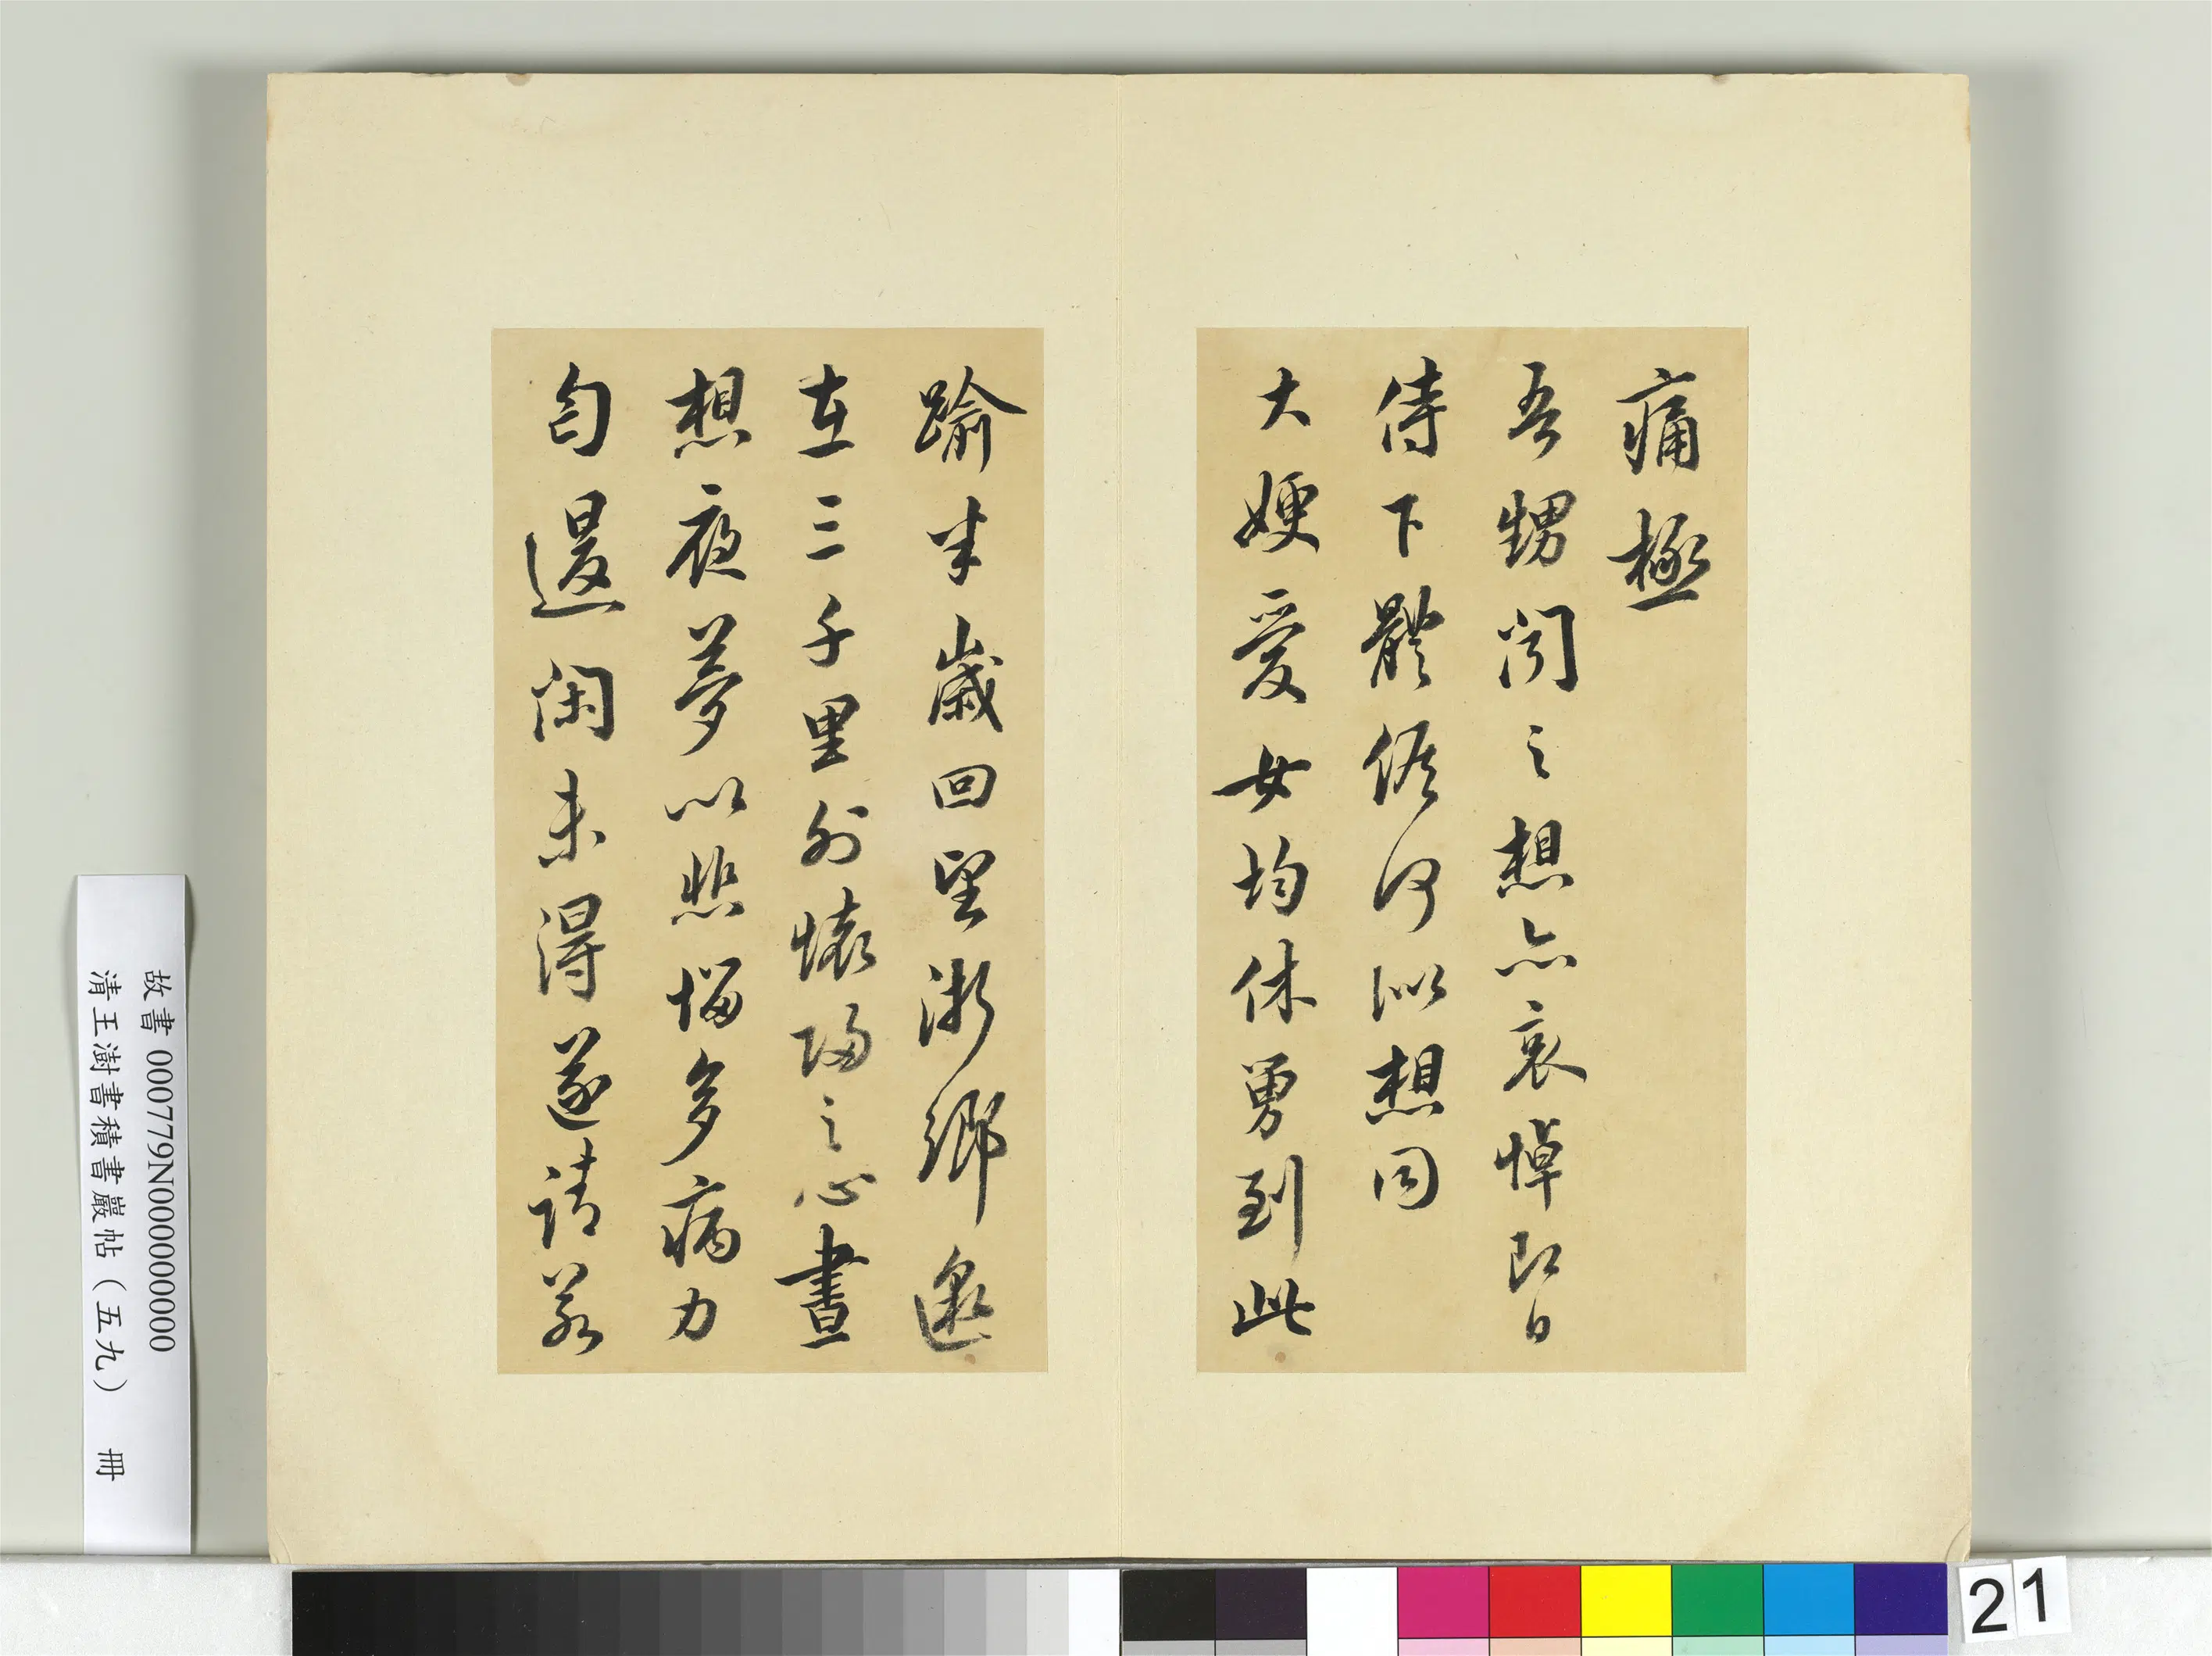 痛極
吾甥聞之想亦哀悼即日
侍下體候何似想同
大嫂愛女均休勇到此
踰半歲回望浙鄉邈
在三千里外懷歸之心晝
想夜夢以悲惱多病力
匄退閑未得遂請若
故書 000779N000000000
清王澍書積書巖帖(五九) 冊
21